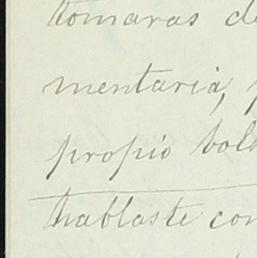 tomaras de
mentaria,
propio bols
hablaste con